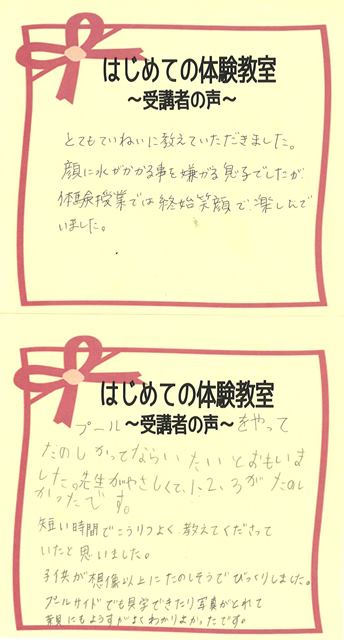 はじめての体験教室
～受講者の声～
とてもていねいに教えていただきました。
顔に水がかかる事を嫌がる息子でしたが
体験授業では終始笑顔で楽しんで
いました。
はじめての体験教室
～受講者の声～
プールをやって
たのしかってならいたいとおもいま
した。先生がやさしくて、1、2、3がたのし
かったです。
短い時間でこうりつよく教えてくださって
いたと思いました。
子供が想像以上にたのしそうでびっくりしました。
プールサイドでも見学できたり写真がとれて
親にもようすがよくわかりよかったです。